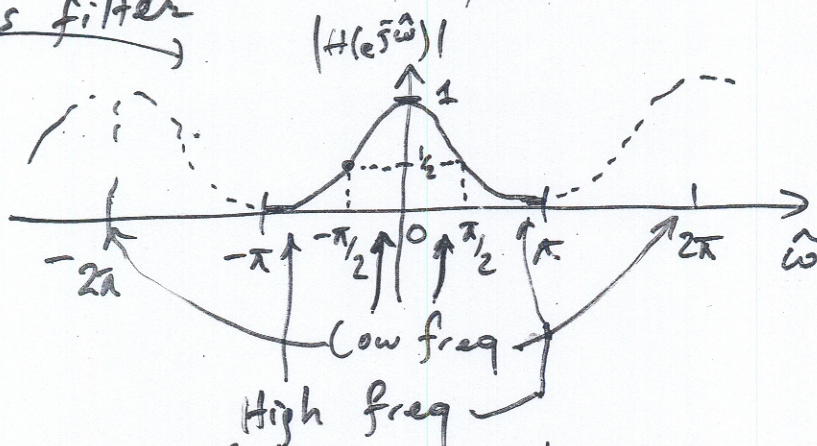 s filter
|H(e^jω̂)|
1
1/2
-2π -π -π/2 0 π/2 π 2π ω̂
Low freq
High freq